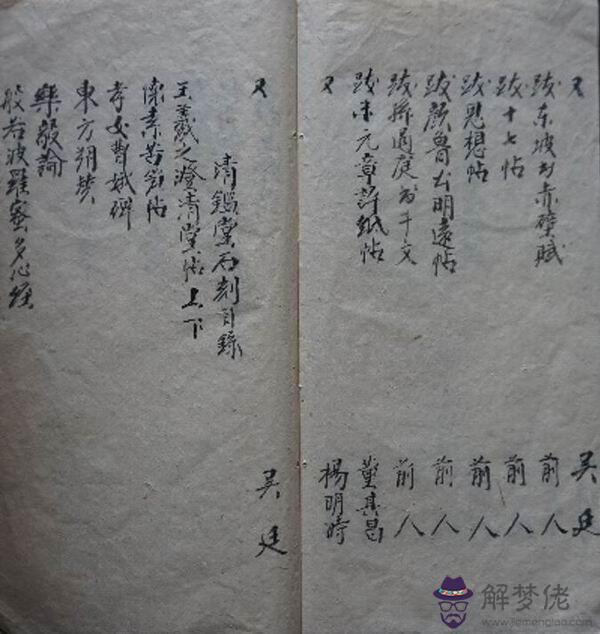 又 吳廷
跋东坡书赤壁賦 前人
跋十七帖 前人
跋思想帖 前人
跋顏魯公明遠帖 前人
跋孫過庭书千文 前人
跋米元章評紙帖 董其昌
又 楊明時
又 吳廷
清鑑堂石刻目錄
王羲之澄清堂帖上下
懷素苦筍帖
孝女曹娥碑
東方朔赞
樂毅論
般若波羅蜜多心經
解梦佬
www.jiemenglao.com